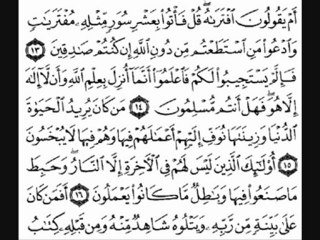 أَمْ يَقُولُونَ ٱفْتَرَىٰهُ ۖ قُلْ فَأْتُوا۟ بِعَشْرِ سُوَرٍ مِّثْلِهِۦ مُفْتَرَيَٰتٍ
وَٱدْعُوا۟ مَنِ ٱسْتَطَعْتُم مِّن دُونِ ٱللَّهِ إِن كُنتُمْ صَٰدِقِينَ ١٣
فَإِلَّمْ يَسْتَجِيبُوا۟ لَكُمْ فَٱعْلَمُوٓا۟ أَنَّمَآ أُنزِلَ بِعِلْمِ ٱللَّهِ وَأَن لَّآ إِلَٰهَ
إِلَّا هُوَ ۖ فَهَلْ أَنتُم مُّسْلِمُونَ ١٤ مَن كَانَ يُرِيدُ ٱلْحَيَوٰةَ
ٱلدُّنْيَا وَزِينَتَهَا نُوَفِّ إِلَيْهِمْ أَعْمَٰلَهُمْ فِيهَا وَهُمْ فِيهَا لَا يُبْخَسُونَ
١٥ أُو۟لَٰٓئِكَ ٱلَّذِينَ لَيْسَ لَهُمْ فِى ٱلْءَاخِرَةِ إِلَّا ٱلنَّارُ ۖ وَحَبِطَ
مَا صَنَعُوا۟ فِيهَا وَبَٰطِلٌ مَّا كَانُوا۟ يَعْمَلُونَ ١٦ أَفَمَن كَانَ
عَلَىٰ بَيِّنَةٍ مِّن رَّبِّهِۦ وَيَتْلُوهُ شَاهِدٌ مِّنْهُ وَمِن قَبْلِهِۦ كِتَٰبُ